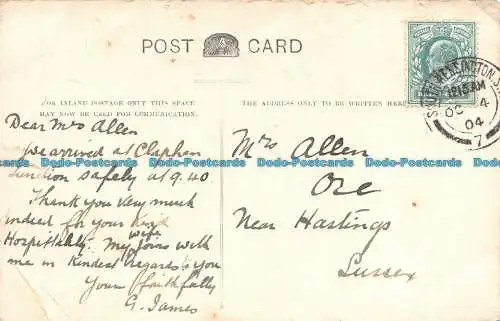 POST CARD
FOR INLAND POSTAGE ONLY THIS SPACE
MAY NOW BE USED FOR COMMUNICATION.
THE ADDRESS ONLY TO BE WRITTEN HERE
12.15AM
OC 4
04
7
Dear Mrs Allen
we arrived at Clapham
Junction safely at 9.40
Thank you very much
indeed for your kind
Hospitality. My wife joins with
me in kindest regards to you
Yours faithfully
G. James
Mrs Allen
Ore
Near Hastings
Sussex
www.delcampe.net